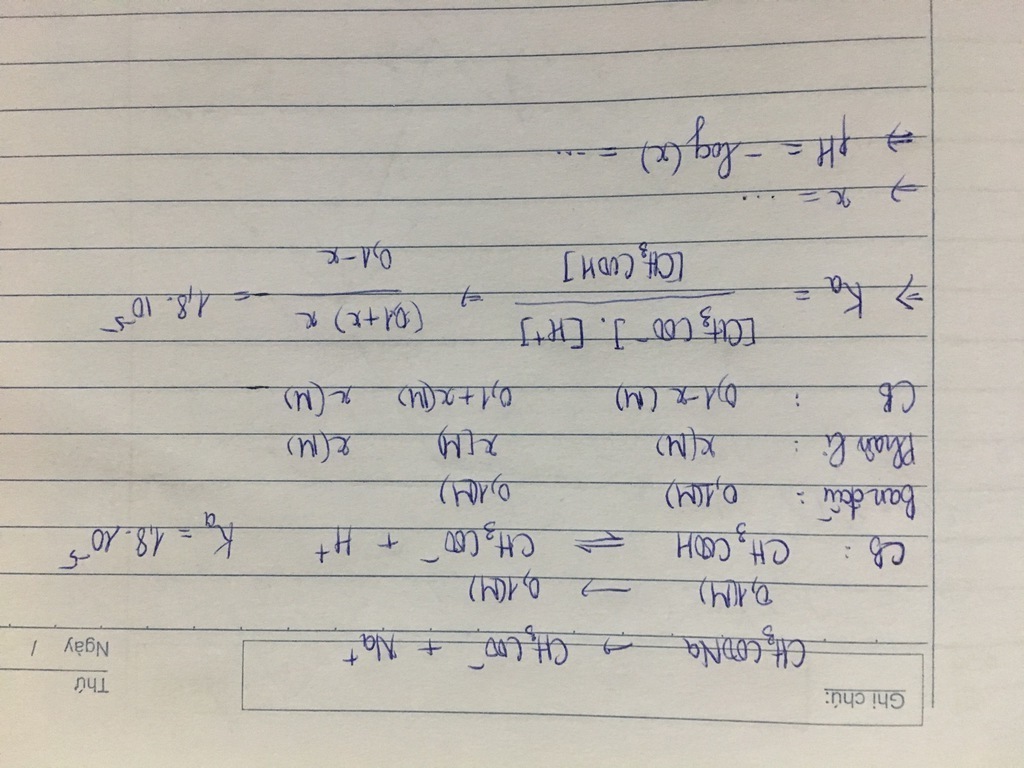 Ghi chú:
Thứ
Ngày /
CH₃COONa → CH₃COO⁻ + Na⁺
0,1(M) → 0,1(M)
CB : CH₃COOH ⇌ CH₃COO⁻ + H⁺ Kₐ = 1,8.10⁻⁵
Ban đầu : 0,1(M) 0,1(M)
Phân li : x(M) x(M) x(M)
CB : 0,1-x(M) 0,1+x(M) x(M)
⇒ Kₐ = [CH₃COO⁻].[H⁺] / [CH₃COOH] ⇒ (0,1+x)x / 0,1-x = 1,8.10⁻⁵
⇒ x = ...
⇒ pH = -log(x) = ...